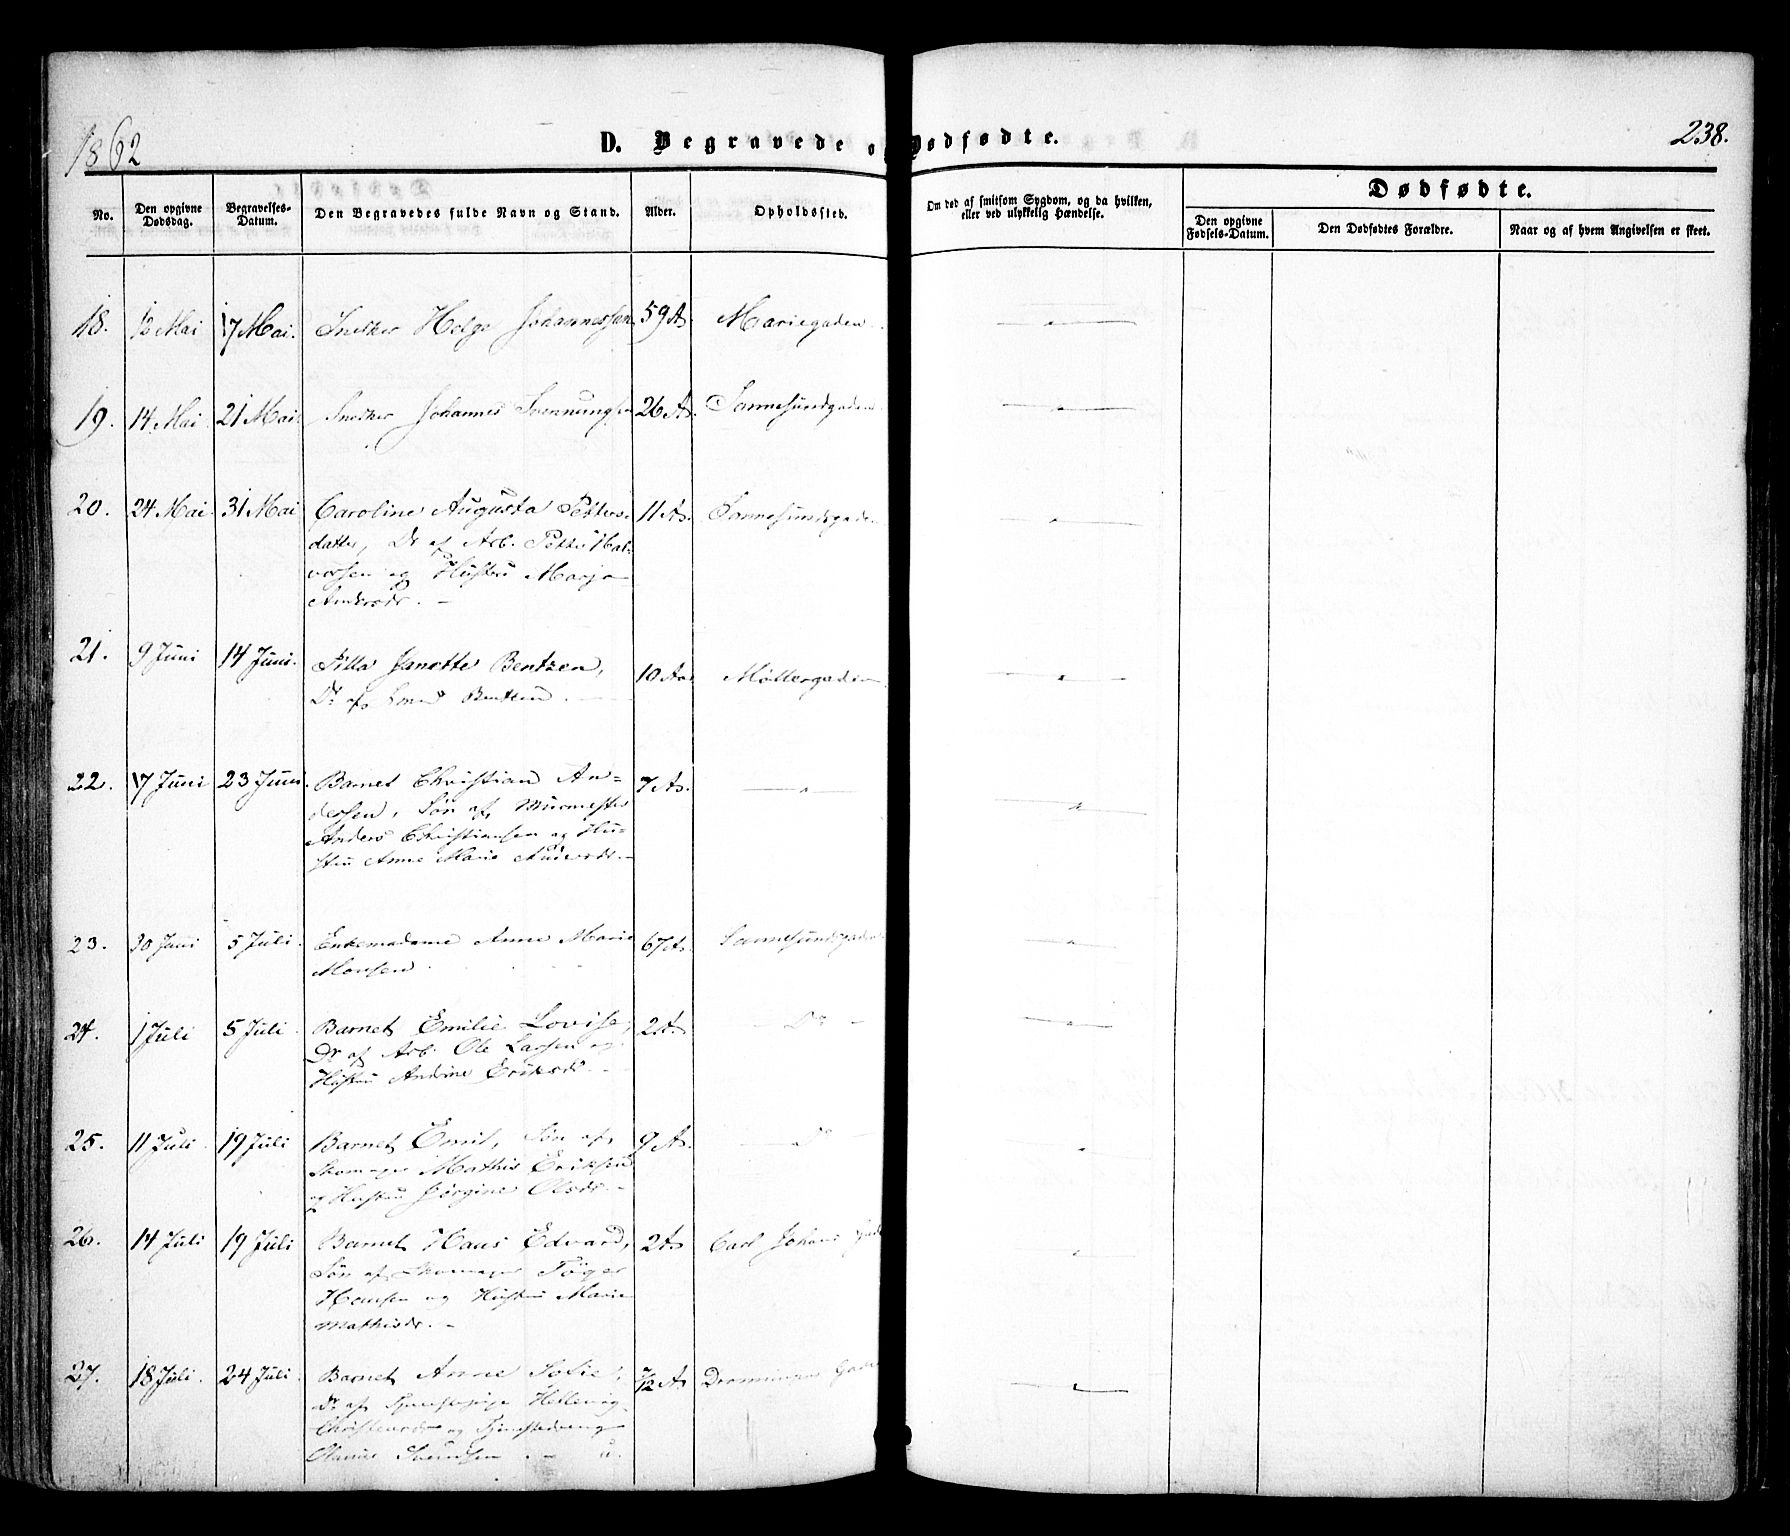 1862
D. Begravede o dødfødte.
238.
No.
Den opgivne Dødsdag.
Begravelses-Datum.
Den Begravedes fulde Navn og Stand.
Alder.
Opholdssted.
Om død af smitsom Sygdom, og da hvilken, eller ved ulykkelig Hændelse.
Dødfødte.
Den opgivne Fødsels-Datum.
Den Dødfødtes Forældre.
Naar og af hvem Angivelsen er skeet.
18. 12 Mai 17 Mai. Snelker Helge Johannessen 59 A. Mariegaden
19. 14 Mai 21 Mai Snelker Johannes Svennungsen 26 As. Sannesundgaden
20. 24 Mai 31 Mai Caroline Augusta Petters- 11 As. Sannesundsgaden
datter, Dr af Arb. Petter Hal-
vorsen og Hustru Marja
Andersdr. —
21. 9 Juni 14 Juni. Janette Bentzen, 10 Aar Møllergaden
Dr af Bentzen
22. 17 Juni 23 Juni Barnet Christian An- 7 As. — " —
dersen, Søn af Murmester
Anders Christiansen og Hu-
stru Anne Marie Andersdr. —
23. 30 Juni 5 Juli. Enkemadame Anne Marie 67 As. Sannesundsgaden
Monsen
24. 1 Juli 5 Juli Barnet Emilie Lovise, 2 As. — Do —
Dr af Arb. Ole Larsen og
Hustru Andine Eriksdr.
25. 11 Juli 19 Juli Barnet Emil, Søn af 9 As. — Do
Skomager Mathis Eriksen
og Hustru Jørgine Olsdr. —
26. 14 Juli 19 Juli Barnet Hans Edvard, 2 As Carl Johans Gade
Søn af Skomager Tøger
Hansen og Hustru Marie
Mathisdr. —
27. 18 Juli. 24 Juli. Barnet Anne Sofie, 7/12 A Dronningens Gade
Dr af Tjenestepige Hellevig
Christensdr og Tjenestedreng
Olaus Svendsen. — u.